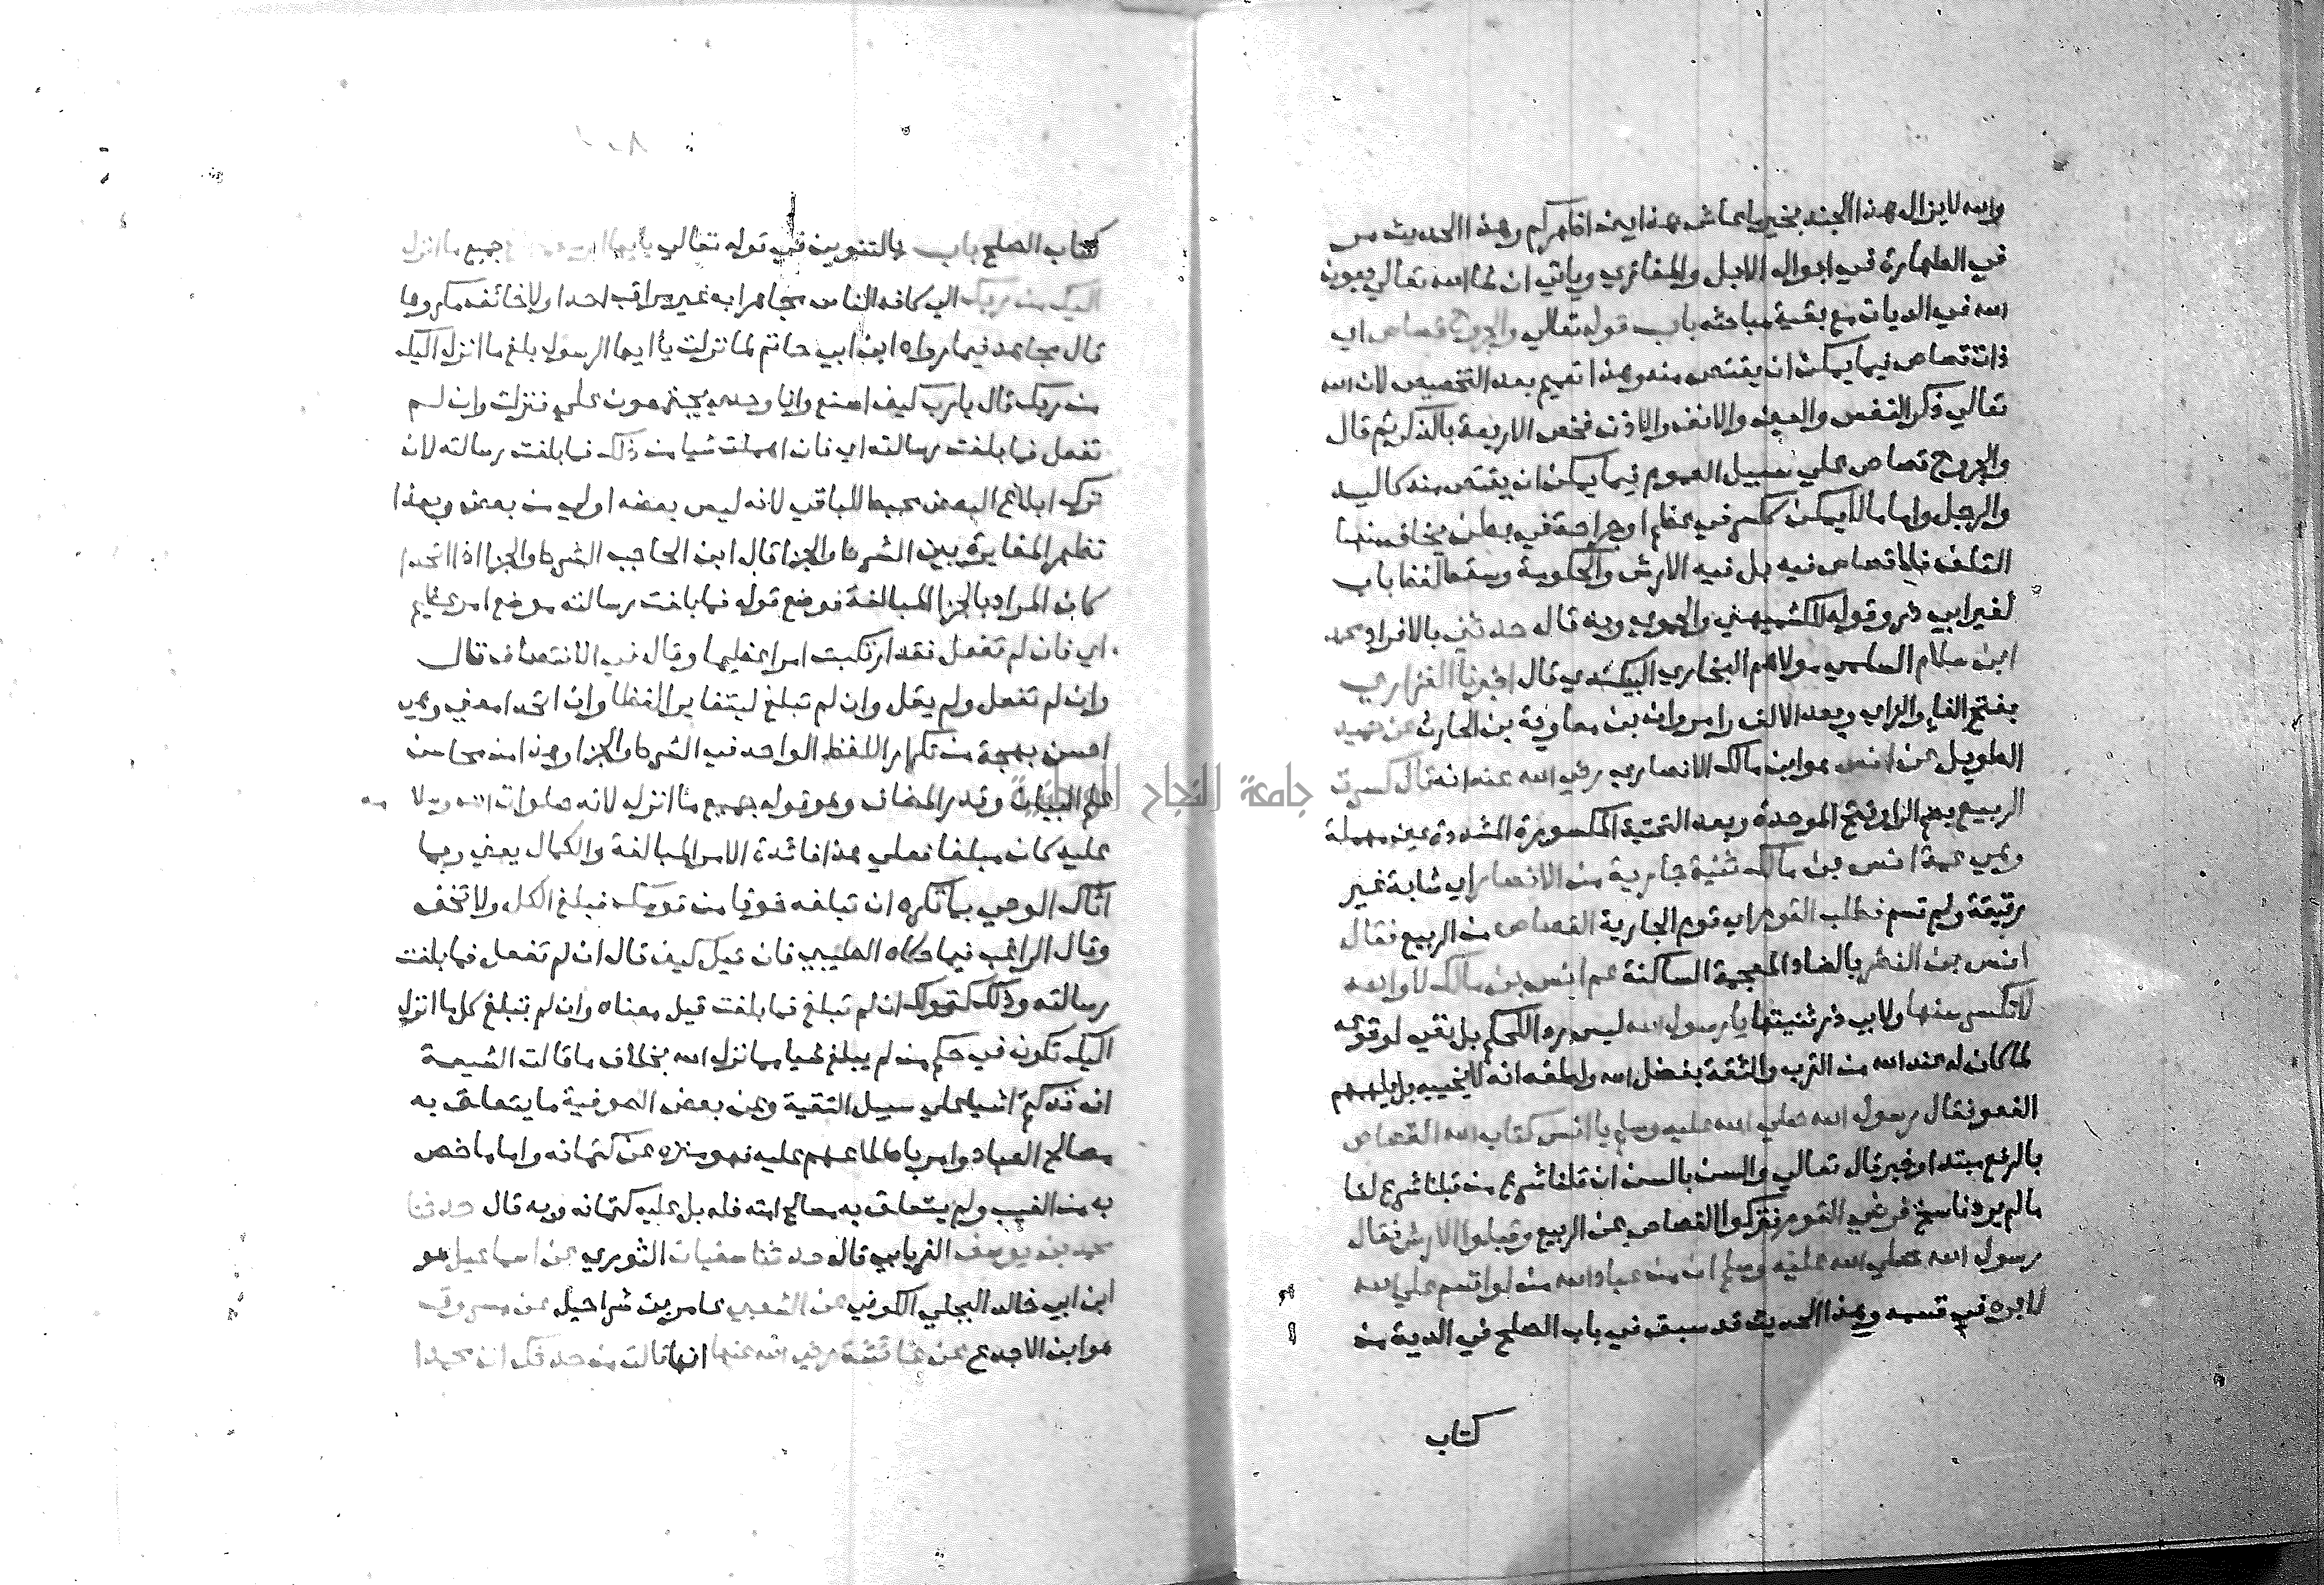 والله لا يزال هذا الجند بخير ما عاش هذا بين اظهركم وهذا الحديث مر
في الطهارة في ابوال الابل والمغازي وياتي ان شاالله تعالي بعون
الله في الديات مع بقية مباحثه باب قوله تعالي والجروح قصاص اي
ذات قصاص فيما يمكن ان يقتص منه وهذا تعميم بعد التخصيص لان الله
تعالي ذكر النفس والعين والانف والاذن فخص الاربعة بالذكر ثم قال
والجروح قصاص علي سبيل العموم فيما يمكن ان يقتص منه كاليد
والرجل واما مالايمكن ككسر في عظم او جراحة في بطن يخاف منها
التلف فلا قصاص فيه بل فيه الارش والحكومة وسقط لفظ باب
لغير ابي ذر وقوله للكشميهني والحموي وبه قال حدثني بالافراد محمد
ابن سلام السلمي مولاهم البخاري البيكندي قال اخبرنا الفزاري
بفتح الفا والزاي وبعد الالف را مروان بن معاوية بن الحارث عن حميد
الطويل عن انس هو ابن مالك الانصاري رضي الله عنه انه قال كسرت
الربيع بضم الرا وفتح الموحدة وبعد التحتية المكسورة المشددة عين مهملة
وهي عمة انس بن مالك ثنية جارية من الانصار اي شابة غير
رقيقة ولم تسم فطلب القوم اي قوم الجارية القصاص من الربيع فقال
انس بن النضر بالضاد المعجمة الساكنة عم انس بن مالك لا والله
لا تكسر سنها ولابي ذر ثنيتها يا رسول الله ليس رد الحكم بل نفي لوقوعه
لما كان له عند الله من القرب والثقة بفضل الله ولطفه انه لايخيبه بل يلهمهم
العفو فقال رسول الله صلي الله عليه وسلم يا انس كتاب الله القصاص
بالرفع مبتدا وخبر قال تعالي والسن بالسن ان قلنا شرع من قبلنا شرع لنا
مالم يرد ناسخ فرضي القوم فتركوا القصاص عن الربيع وقبلوا الارش فقال
رسول الله صلي الله عليه وسلم ان من عباد الله من لو اقسم علي الله
لابره في قسمه وهذا الحديث قد سبق في باب الصلح في الدية من
كتاب
كتاب الصلح باب بالتنوين في قوله تعالي يايها جميع ما انزل
اليك من ربك الي كافه الناس مجاهرا به غير مراقب احدا ولا خائف مكروها
قال مجاهد فيما رواه ابن ابي حاتم لما نزلت يا ايها الرسول بلغ ما انزل اليك
من ربك قال يارب كيف اصنع وانا وحدي يجتمعون علي فنزلت وان لم
تفعل فما بلغت رسالته اي فان اهملت شيا من ذلك فما بلغت رسالته لان
ترك ابلاغ البعض محبط للباقي لانه ليس بعضه اولي من بعض وبهذا
تظهر المغايرة بين الشرط والجزا قال ابن الحاجب الشرط والجزا اذا اتحدا
كان المراد بالجزا المبالغة فوضع قوله فما بلغت رسالته موضع امر عظيم
اي فان لم تفعل فقد ارتكبت امرا عظيما وقال في الانتصاف قال
وان لم تفعل ولم يقل وان لم تبلغ ليتغاير اللفظا وان اتحدا معني وهي
احسن بهجة من تكرار اللفظ الواحد في الشرط والجزا وهذا من محاسن
علم البيان وقدر المضاف وهو قوله جميع ما انزل لانه صلوات الله وسلا مه
عليه كان مبلغا فعلي هذا فائدة الامر المبالغة والكمال يعني ربما
اتاك الوحي بما تكره ان تبلغه خوفا من قومك فبلغ الكل ولا تخف
وقال الراغب فيما حكاه الطيبي فان قيل كيف قال ان لم تفعل فما بلغت
رسالته وذلك كقولك ان لم تبلغ فما بلغت قيل معناه وان لم تبلغ كل ما انزل
اليك تكون في حكم من لم يبلغ شيا مما نزل الله بخلاف ما قالت الشيعة
انه قد كتم اشيا علي سبيل التقية وعن بعض الصوفية ما يتعلق به
مصالح العباد وامر باطلاعهم عليه فهو منزه عن كتمانه واما ما خص
به من الغيب ولم يتعلق به مصالح امته فله بل عليه كتمانه وبه قال حدثنا
محمد بن يوسف الفريابي قال حدثنا سفيان الثوري عن اسماعيل هو
ابن ابي خالد البجلي الكوفي عن الشعبي عامر بن شراحيل عن مسروق
هو ابن الاجدع عن عائشة رضي الله عنها انها قالت من حدثك ان محمدا
جامعة النجاح الوطنية